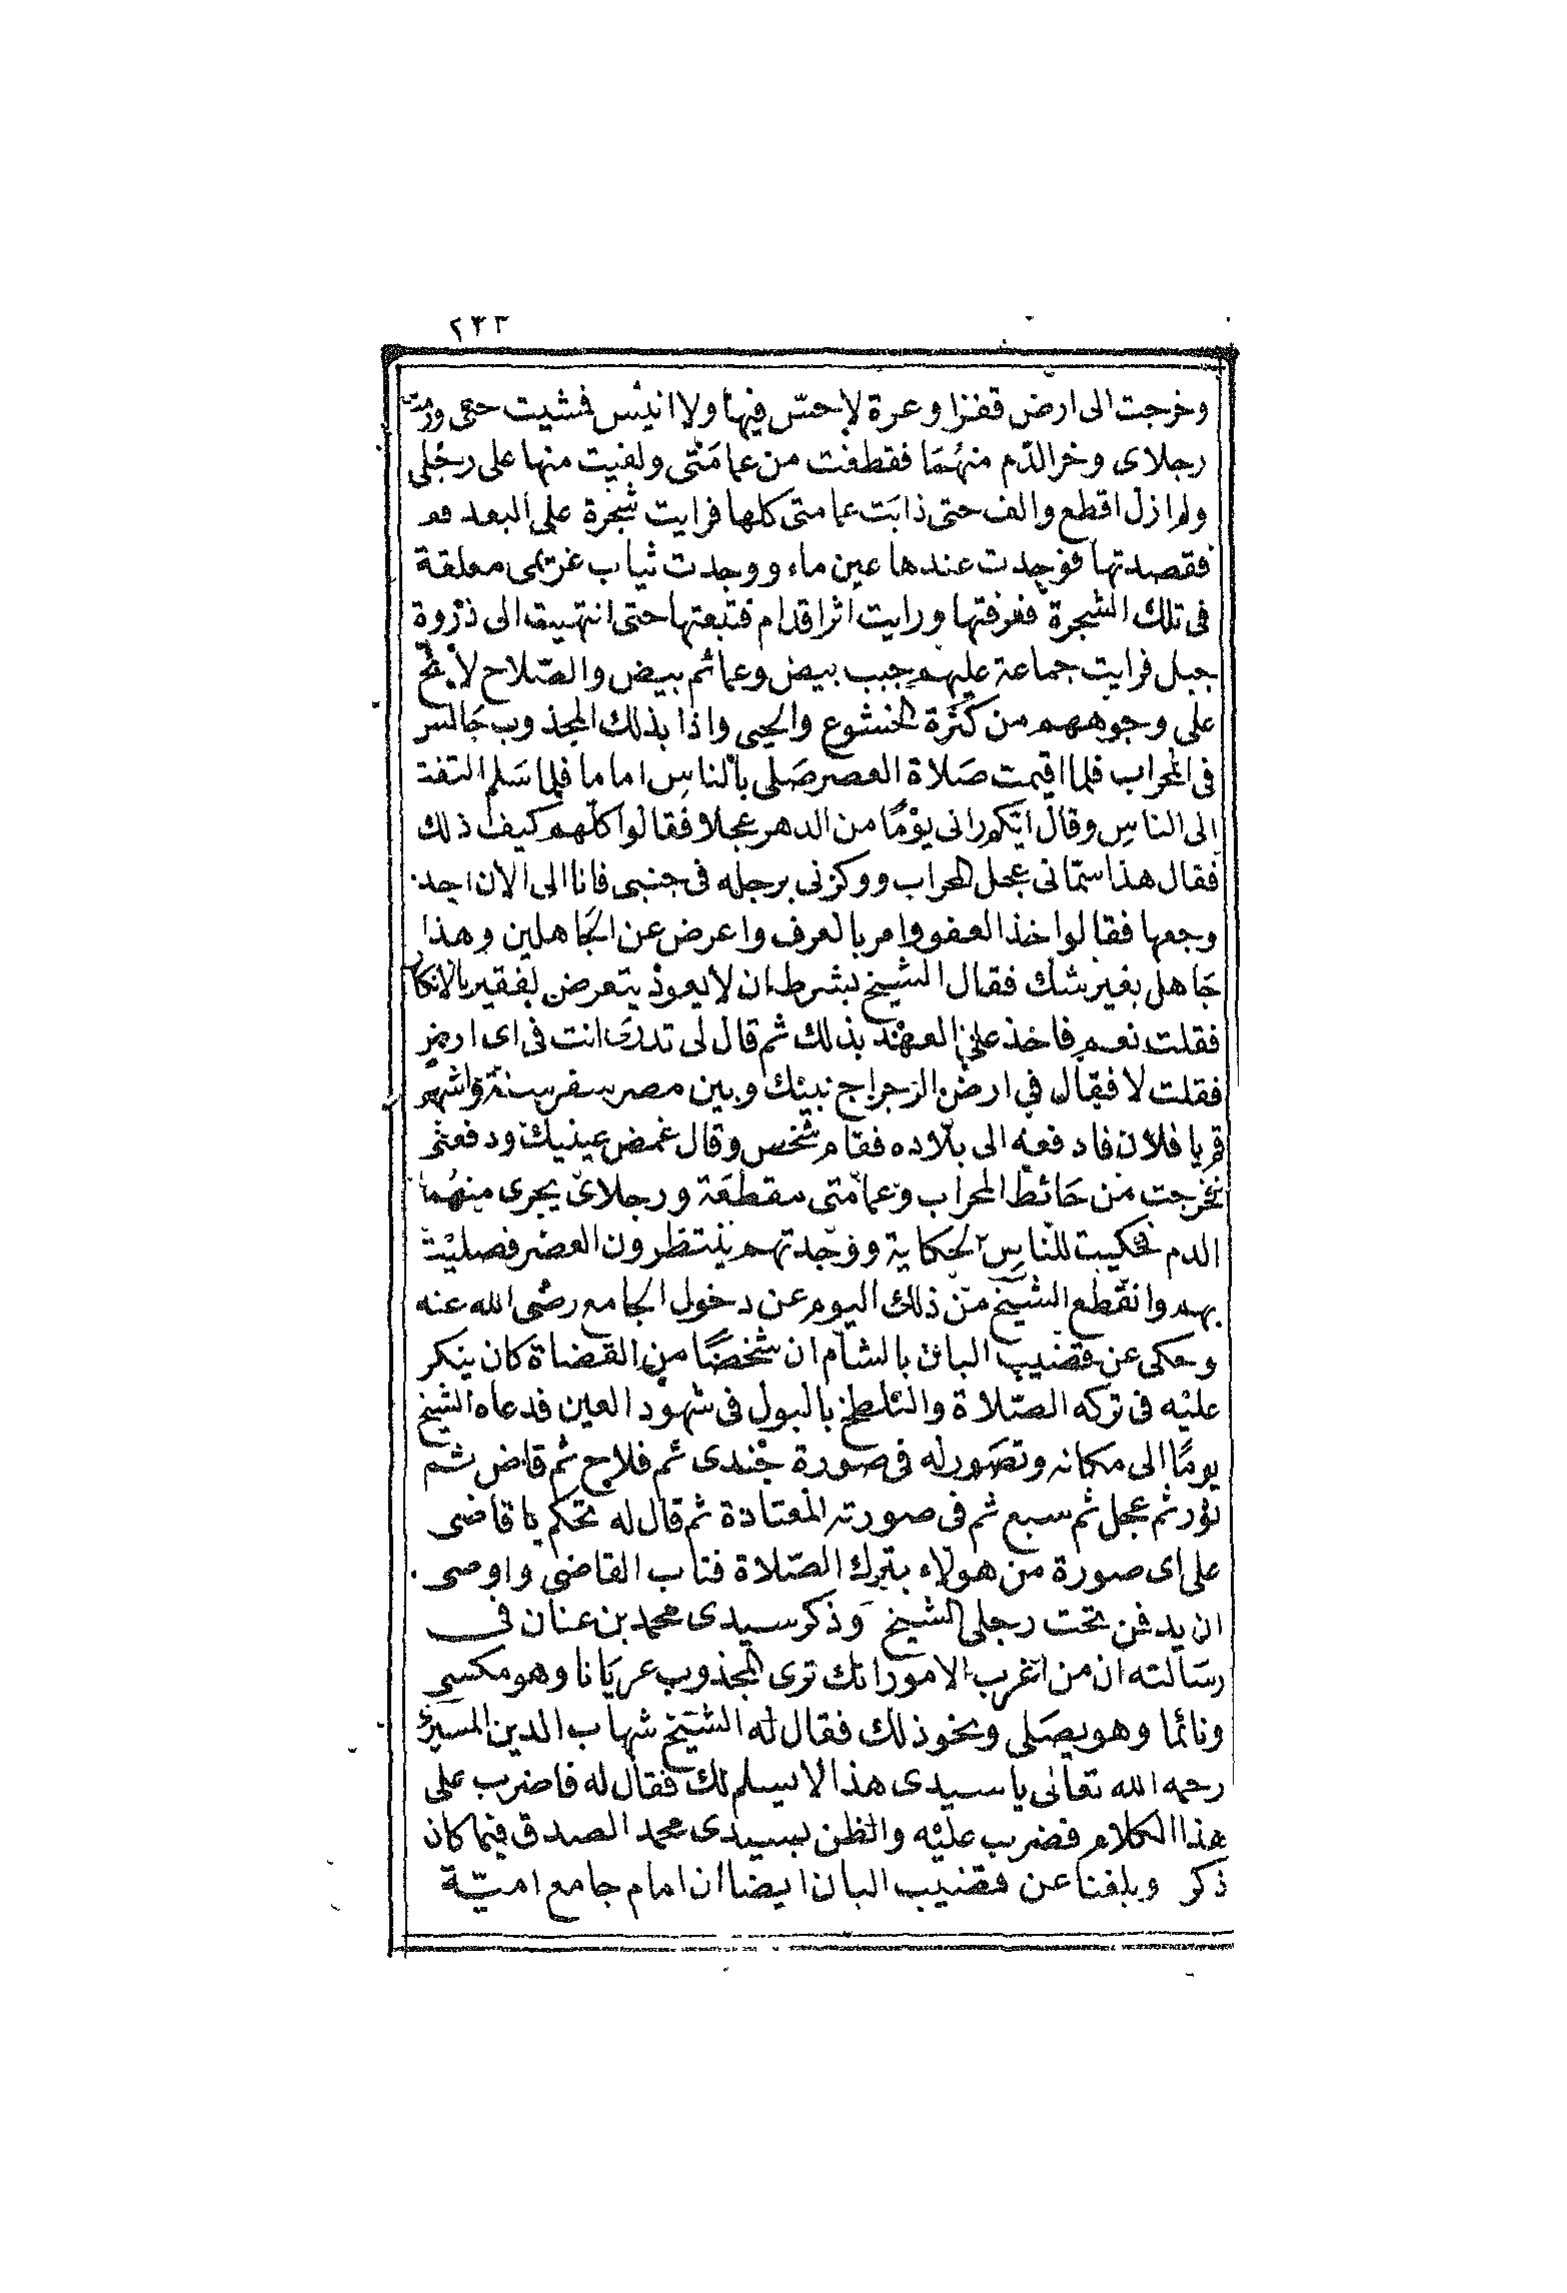 ٢٣٣
وخرجت الى ارض قفزا وعرة لاحس فيها ولا انيس فمشيت حتى ورمت
رجلاى وخر الدم منهما فقطفت من عمامتى ولفيت منها على رجلى
ولم ازل اقطع والف حتى ذابت عمامتى كلها فرايت شجرة على البعد
فقصدتها فوجدت عندها عين ماء ووجدت ثياب غريمى معلقة
فى تلك الشجرة فعرفتها ورايت اثر اقدام فتبعتها حتى انتهيت الى ذروة
جبل فرايت جماعة عليهم جبب بيض وعمائم بيض والصلاح لائح
على وجوههم من كثرة الخشوع والحيى واذا بذلك المجذوب جالس
فى المحراب فلما اقيمت صلاة العصر صلى بالناس اماما فلما سلم التفت
الى الناس وقال ايكم رانى يوما من الدهر عجلا فقالوا كلهم كيف ذلك
فقال هذا سمانى عجل المحراب ووكزنى برجله فى جنبى فانا الى الان اجد
وجعها فقالوا خذ العفو وامر بالعرف واعرض عن الجاهلين وهذا
جاهل بغير شك فقال الشيخ بشرط ان لا يعود يتعرض لفقير بالانكار
فقلت نعم فاخذ على العهد بذلك ثم قال لى تدرى انت فى اى ارض
فقلت لا فقال فى ارض الزجراج بينك وبين مصر سفر سنة واشهر
قم يا فلان فادفعه الى بلاده فقام شخص وقال غمض عينيك ودفعنى
فخرجت من حائط المحراب وعمامتى مقطعة ورجلاى يجرى منهما
الدم فحكيت للناس الحكاية ووجدتهم ينتظرون العصر فصليت
بهم وانقطع الشيخ من ذلك اليوم عن دخول الجامع رضى الله عنه
وحكى عن قضيب البان بالشام ان شخصا من القضاة كان ينكر
عليه فى تركه الصلاة والتلطخ بالبول فى شهود العين فدعاه الشيخ
يوما الى مكانه وتصور له فى صورة جندى ثم فلاح ثم قاض ثم
ثور ثم عجل ثم سبع ثم فى صورته المعتادة ثم قال له تحكم يا قاضى
على اى صورة من هولاء بترك الصلاة فتاب القاضى واوصى
ان يدفن تحت رجلى الشيخ وذكر سيدى محمد بن عنان فى
رسالته ان من اغرب الامور انك ترى المجذوب عريانا وهو مكسى
ونائما وهو يصلى ونحو ذلك فقال له الشيخ شهاب الدين
رحمه الله تعالى يا سيدى هذا لا يسلم لك فقال له فاضرب على
هذا الكلام فضرب عليه والظن بسيدى محمد الصدق فيما كان
ذكر وبلغنا عن قضيب البان ايضا ان امام جامع امية